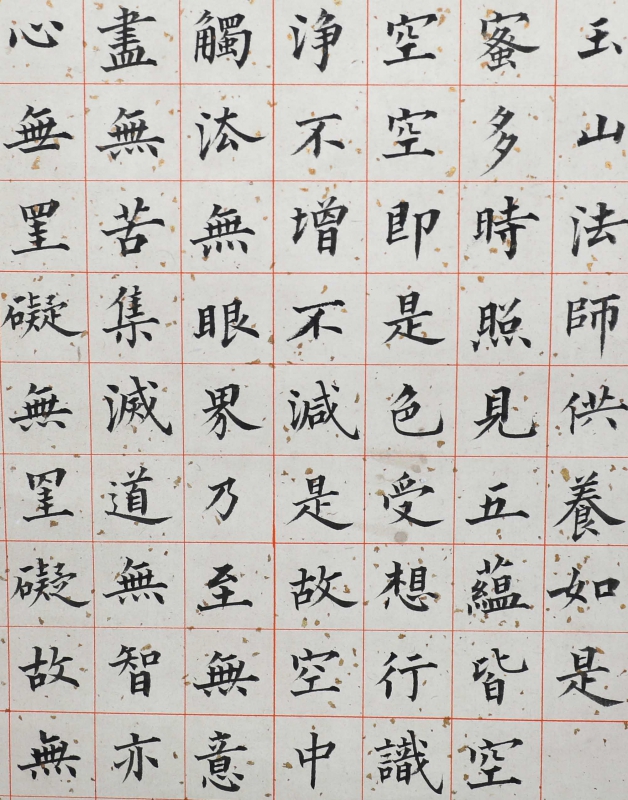 玉山法師供養如是
蜜多時照見五蘊皆空
空空即是色受想行識
浄不增不減是故空中
觸法無眼界乃至無意
盡無苦集滅道無智亦
心無罣礙無罣礙故無